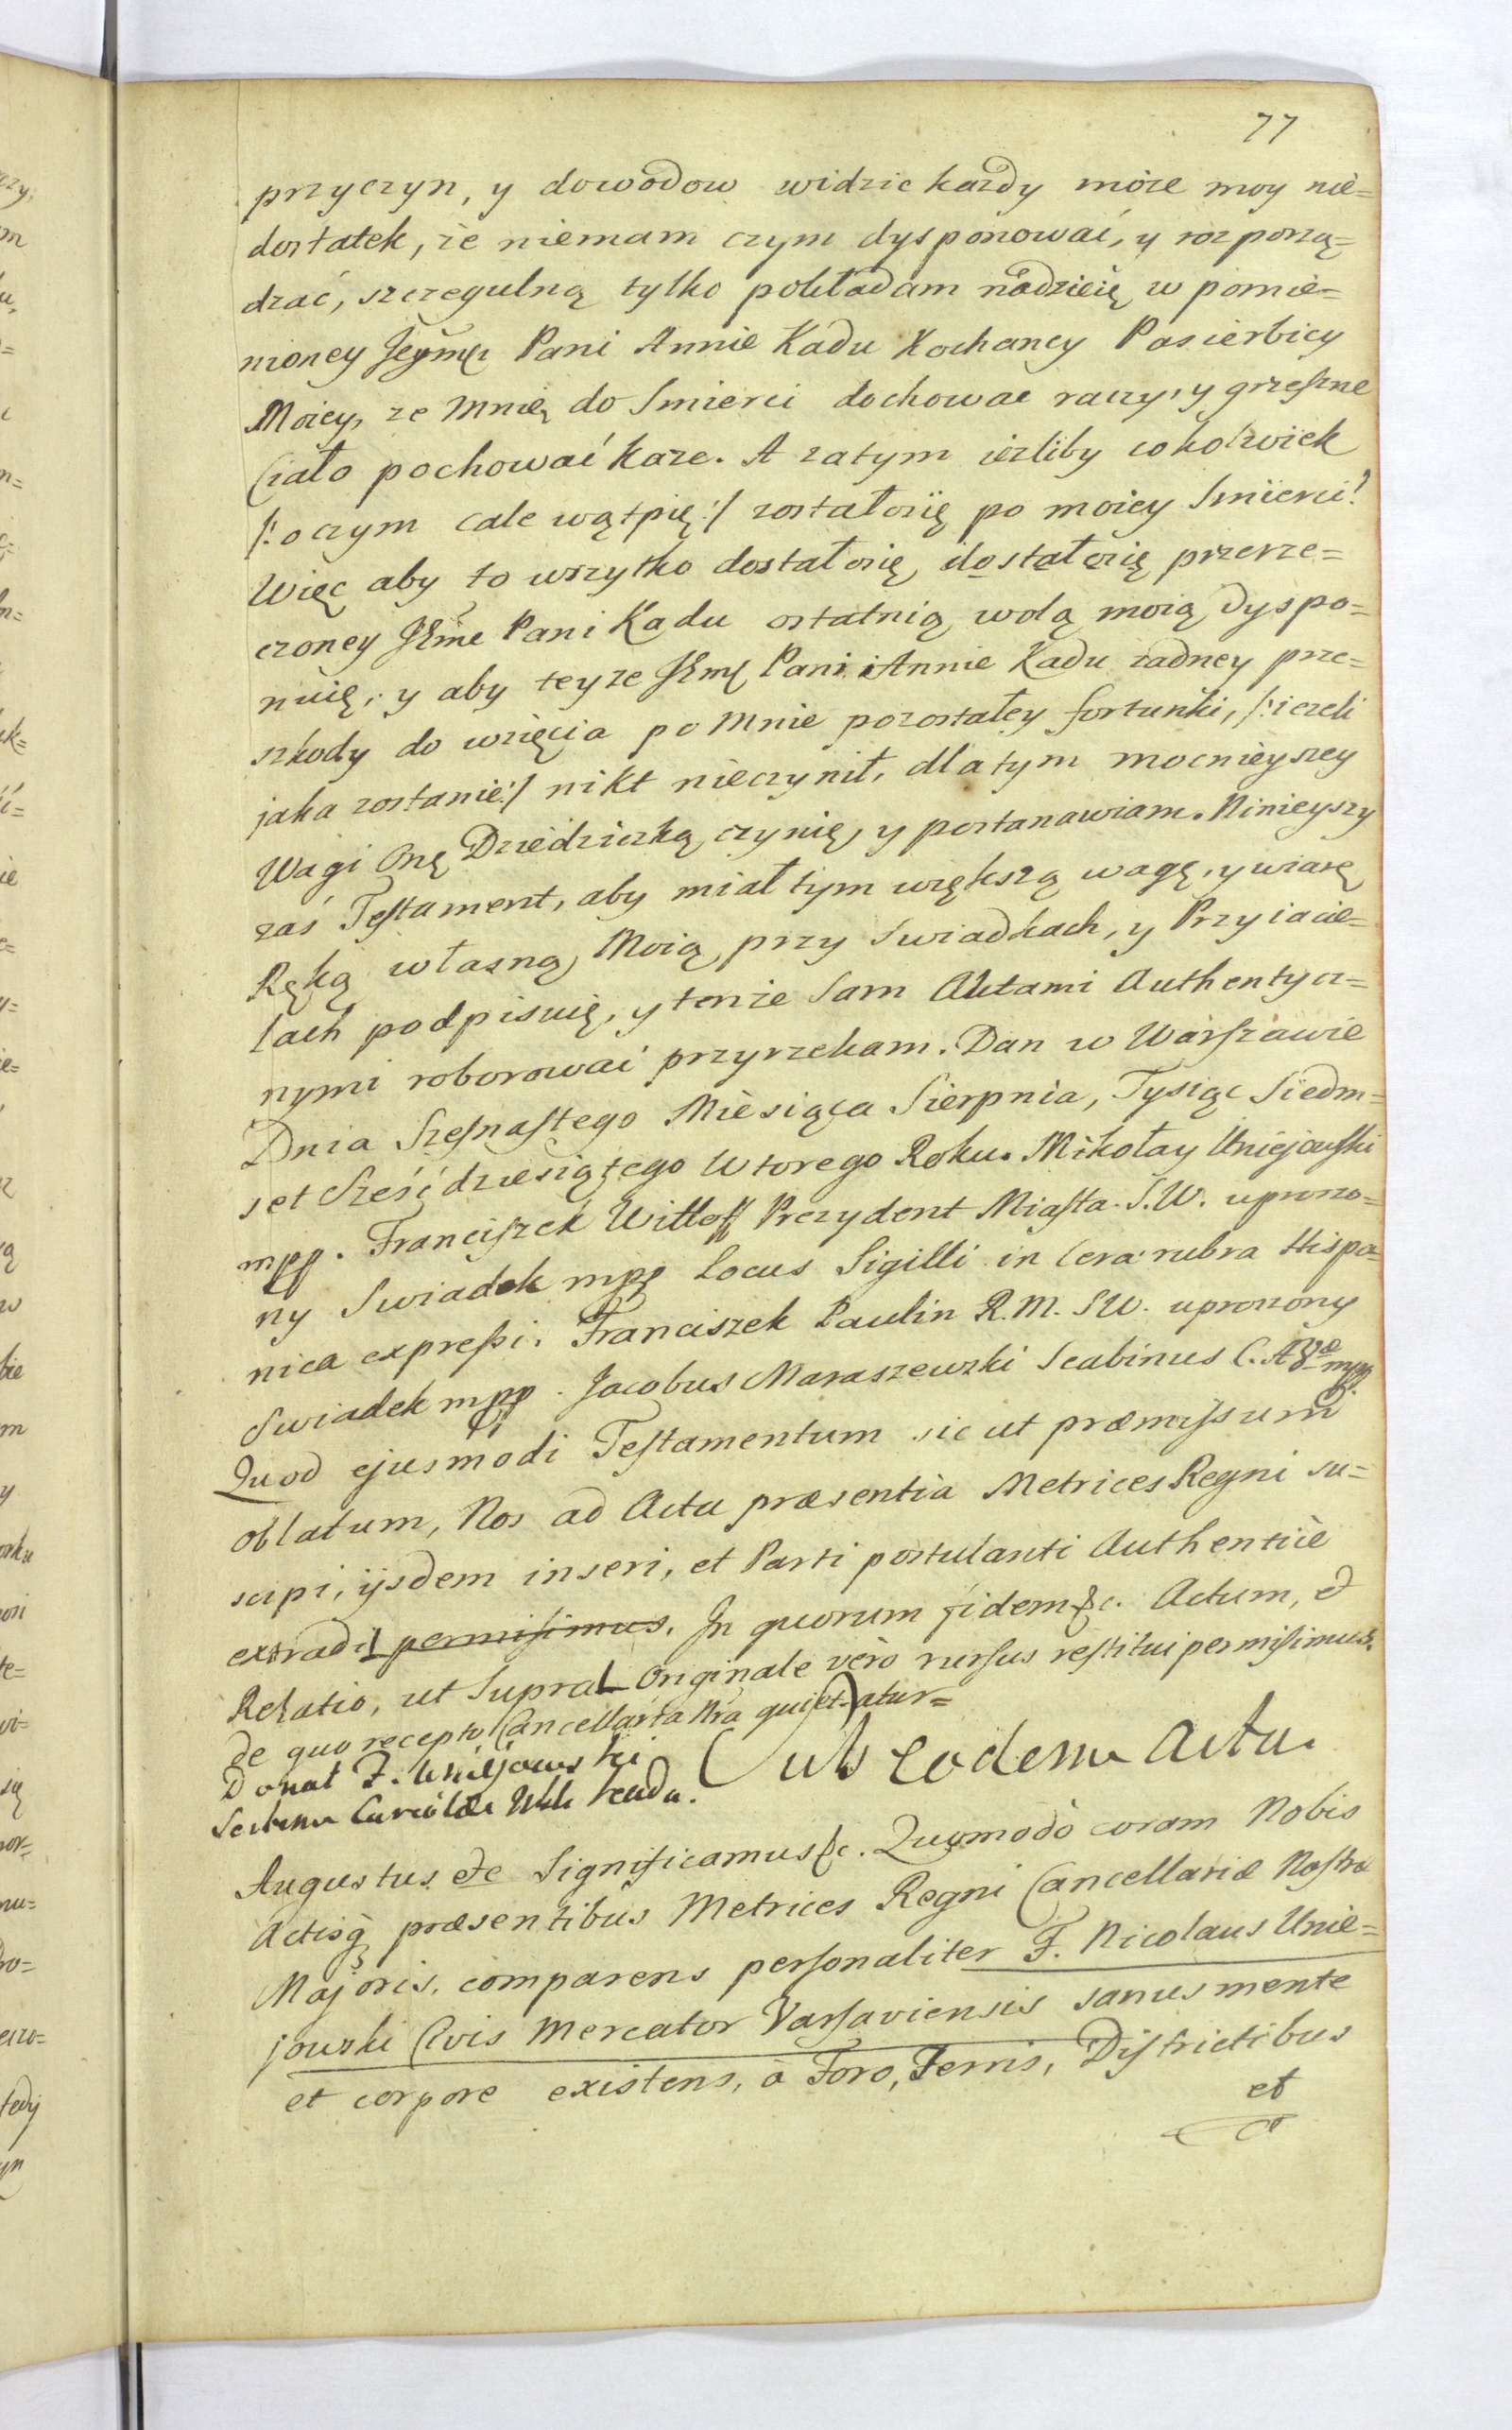 77
przyczyn, y dowodow widzic kazdy może moy nie=
dostatek, że niemam czym dysponować, y rozporzą=
dzać, szczegulną tylko pokładam nadzieię w pomie=
nioney Jeymci Pani Annie Kadu Kochaney Pasierbicy
Moiey, ze Mnię do Smierci dochować raczy, y grzeszne
Ciało pochować każe. A zatym iezliby cokolwiek
/: o czym cale wątpię :/ zostałosię po moiey Smierci?
Więc aby to wszytko dostałosię, dostałosię przerze=
czoney JEmc Pani Kadu ostatnią wolą moią dyspo=
nuię; y aby teyze JEmc Pani Annie Kadu żadney prze=
szkody do wzięcia po Mnie pozostałey fortunki, /: iezeli
jaka zostanie :/ nikt nieczynił, dla tym mocnieyszey
Wagi Onę Dziedziczką czynię, y postanawiam. Ninieyszy
zaś Testament, aby miał tym większą wagę, y wiarę
Ręką własną, Moią, przy Swiadkach, y Przyiacie=
lach podpisuię, y tenże Sam Aktami Authentycz=
nymi roborować przyrzekam. Dan w Warszawie
Dnia Szesnastego Miesiąca Sierpnia, Tysiąc Siedm=
set Sześćdziesiątego Wtorego Roku. Mikołay Uniejowski
mpp. Franciszek Wittoff Prezydent Miasta S. W. uproszo=
ny Swiadek mpp Locus Sigilli in Cera rubra Hispa=
nica expressi. Franciszek Paulin R. M. SW. uproszony
Swiadek mpp. Jacobus Maraszewski Scabinus C. A. Vae mpp.
Quod ejusmodi Testamentum sic ut præmissum
oblatum, Nos ad Acta præsentia Metrices Regni su=
scipi, ijsdem inseri, et Parti postulanti Authenticè
extradi permisimus. In quorum fidem &c. Actum, et
Relatio, ut Supra Originale verò rursus restitui permisimus.
de quo recepto Cancellaria Nra quietatur=
Donat F. Uniejowski
Sub eodem Actu.
Augustus etc Significamus &c. Quomodò coram Nobis
Actisq præsentibus Metrices Regni Cancellariæ Nostræ
Majoris, comparens personaliter F. Nicolaus Unie=
jowski Civis Mercator Varsaviensis sanus mente
et corpore existens, à Foro, Terris, Districtibus
et